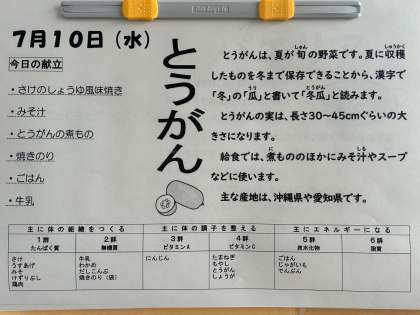 7月10日（水）
今日の献立
・さけのしょうゆ風味焼き
・みそ汁
・とうがんの煮もの
・焼きのり
・ごはん
・牛乳
とうがん
とうがんは、夏が旬の野菜です。夏に収穫
したものを冬まで保存できることから、漢字で
「冬」の「瓜」と書いて「冬瓜」と読みます。
とうがんの実は、長さ30～45cmぐらいの大
きさになります。
給食では、煮もののほかにみそ汁やスープ
などに使います。
主な産地は、沖縄県や愛知県です。
主に体の組織をつくる
主に体の調子を整える
主にエネルギーになる
1群 2群 3群 4群 5群 6群
たんぱく質 無機質 ビタミンA ビタミンC 炭水化物 脂質
さけ 牛乳 にんじん たまねぎ ごはん
うすあげ わかめ もやし じゃがいも
みそ だしこんぶ とうがん でんぷん
けずりぶし 焼きのり（袋） しょうが
鶏肉